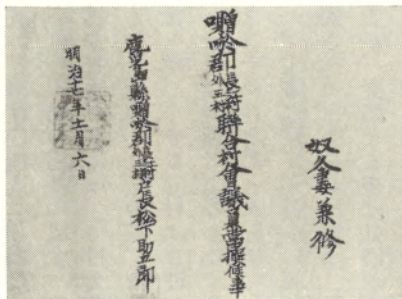 奴久妻兼修
囎唹郡
外三村聯合村會議員當撰候事
鹿兒島縣囎唹郡
外三村戸長松下助五郎
明治十七年十二月六日